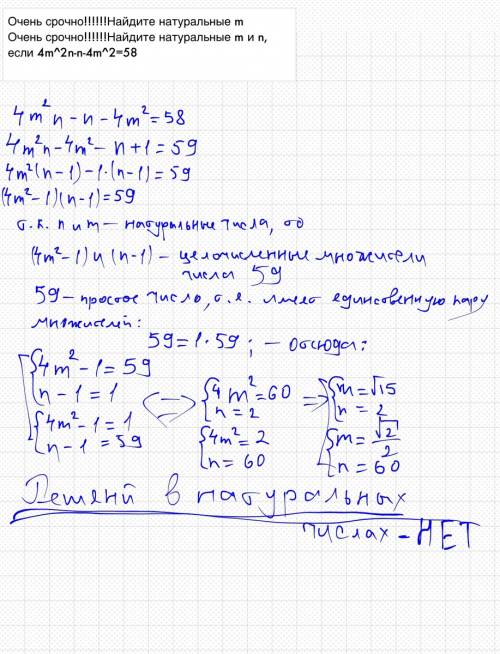 Очень срочно!!!!!!Найдите натуральные m
Очень срочно!!!!!!Найдите натуральные m и n,
если 4m^2n-n-4m^2=58
4m²n - n - 4m² = 58
4m²n - 4m² - n + 1 = 59
4m²(n-1) - 1·(n-1) = 59
(4m²-1)(n-1) = 59
т.к. n и m — натуральные числа, то
(4m²-1) и (n-1) - целочисленные множители
числа 59
59 - простое число, т.е. имеет единственную пару
множителей:
59 = 1·59; - отсюда:
[{4m²-1 = 59 <=> {4m² = 60 => [{m = √15
n-1 = 1 n = 2 n = 2
{4m²-1 = 1 {4m² = 2 {m = √2/2
n-1 = 59 n = 60 n = 60
Решений в натуральных
числах - НЕТ